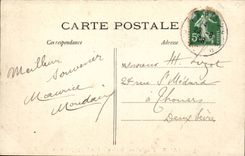 CARTE POSTALE
Correspondance
Adresse
Meilleur
Souvenir
Maurice
Monsieur H.
24 rue St Médard
à Thouars
Deux Sèvres